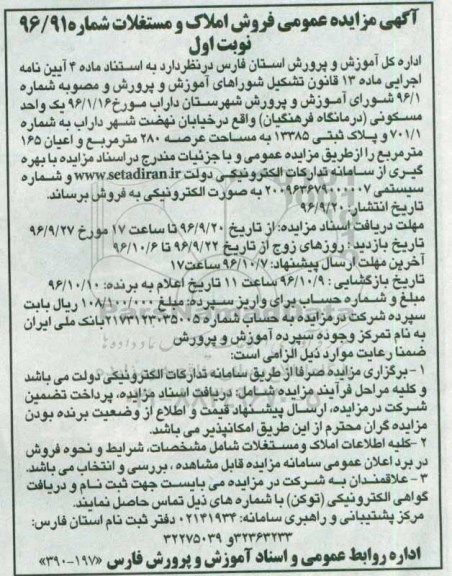 آگهی مزایده عمومی فروش املاک و مستغلات شماره ۹۶/۹۱
نوبت اول
اداره کل آموزش و پرورش استان فارس درنظر دارد به استناد ماده ۴ آیین نامه
اجرایی ماده ۱۳ قانون تشکیل شوراهای آموزش و پرورش و مصوبه شماره
۹۶/۱ شورای آموزش و پرورش شهرستان داراب مورخ ۹۶/۱/۱۶ یک واحد
مسکونی (درمانگاه فرهنگیان) واقع درخیابان نهضت شهر داراب به شماره
۷۰۱/۱ و پلاک ثبتی ۱۳۳۸۵ به مساحت عرصه ۲۸۰ مترمربع و اعیان ۱۶۵
مترمربع را ازطریق مزایده عمومی و با جزئیات مندرج دراسناد مزایده با بهره
گیری از سامانه تدارکات الکترونیکی دولت www.setadiran.ir و شماره
سیستمی ۲۰۰۹۶۳۶۷۹۰۰۰۰۰۷ به صورت الکترونیکی به فروش برساند.
تاریخ انتشار: ۹۶/۹/۲۰
مهلت دریافت اسناد مزایده: از تاریخ ۹۶/۹/۲۰ تا ساعت ۱۷ مورخ ۹۶/۹/۲۷
تاریخ بازدید: روزهای زوج از تاریخ ۹۶/۹/۲۲ تا ۹۶/۱۰/۶
آخرین مهلت ارسال پیشنهاد: ۹۶/۱۰/۷ ساعت۱۷
تاریخ بازگشایی: ۹۶/۱۰/۹ ساعت ۱۱ تاریخ اعلام به برنده: ۹۶/۱۰/۱۰
مبلغ و شماره حساب برای واریز سپرده: مبلغ ۱۰۸/۱۰۰/۰۰۰ ریال بابت
سپرده شرکت در مزایده به حساب شماره ۲۱۷۳۱۲۳۰۳۵۰۰۵بانک ملی ایران
به نام تمرکز وجوه سپرده آموزش و پرورش
ضمنا رعایت موارد ذیل الزامی است:
۱-برگزاری مزایده صرفا از طریق سامانه تدارکات الکترونیکی دولت می باشد
و کلیه مراحل فرآیند مزایده شامل دریافت اسناد مزایده، پرداخت تضمین
شرکت درمزایده، ارسال پیشنهاد قیمت و اطلاع از وضعیت برنده بودن
مزایده گران محترم از این طریق امکانپذیر می باشد.
۲-کلیه اطلاعات املاک ومستغلات شامل مشخصات، شرایط و نحوه فروش
در برد اعلان عمومی سامانه مزایده قابل مشاهده ، بررسی و انتخاب می باشد.
۳- علاقمندان به شرکت در مزایده می بایست جهت ثبت نام و دریافت
گواهی الکترونیکی (توکن) با شماره های ذیل تماس حاصل نمایند.
مرکز پشتیبانی و راهبری سامانه: ۰۲۱۳۱۹۳۴ دفتر ثبت نام استان فارس:
۳۲۳۶۳۲۳۳و ۳۲۲۷۵۰۳۹
اداره روابط عمومی و اسناد آموزش و پرورش فارس «۱۹۷-۳۹۰»